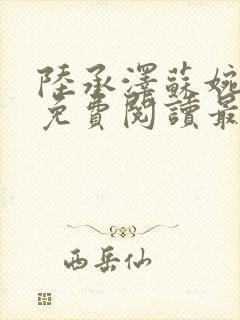 陸承澤蘇婉
免費閱讀最
西岳仙